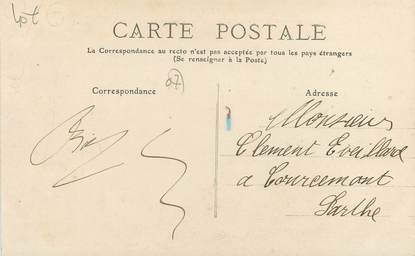 Lot
CARTE POSTALE
La Correspondance au recto n'est pas acceptée par tous les pays étrangers
(Se renseigner à la Poste)
Correspondance
07
Adresse
Monsieur
Clement Eveillard
a Courcemont
Sarthe